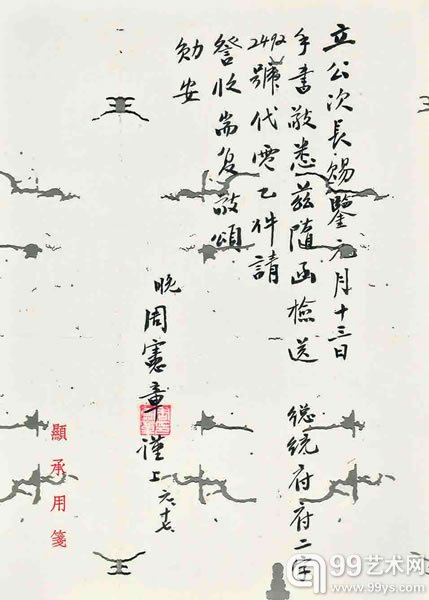 立公次長賜鑒元月十三日
手書敬悉茲隨函檢送 總統府府二字
2492號代電乙件請
詧收耑復敬頌
勛安
晚周憲章謹上
顯承用箋
99艺术网
www.99ys.com